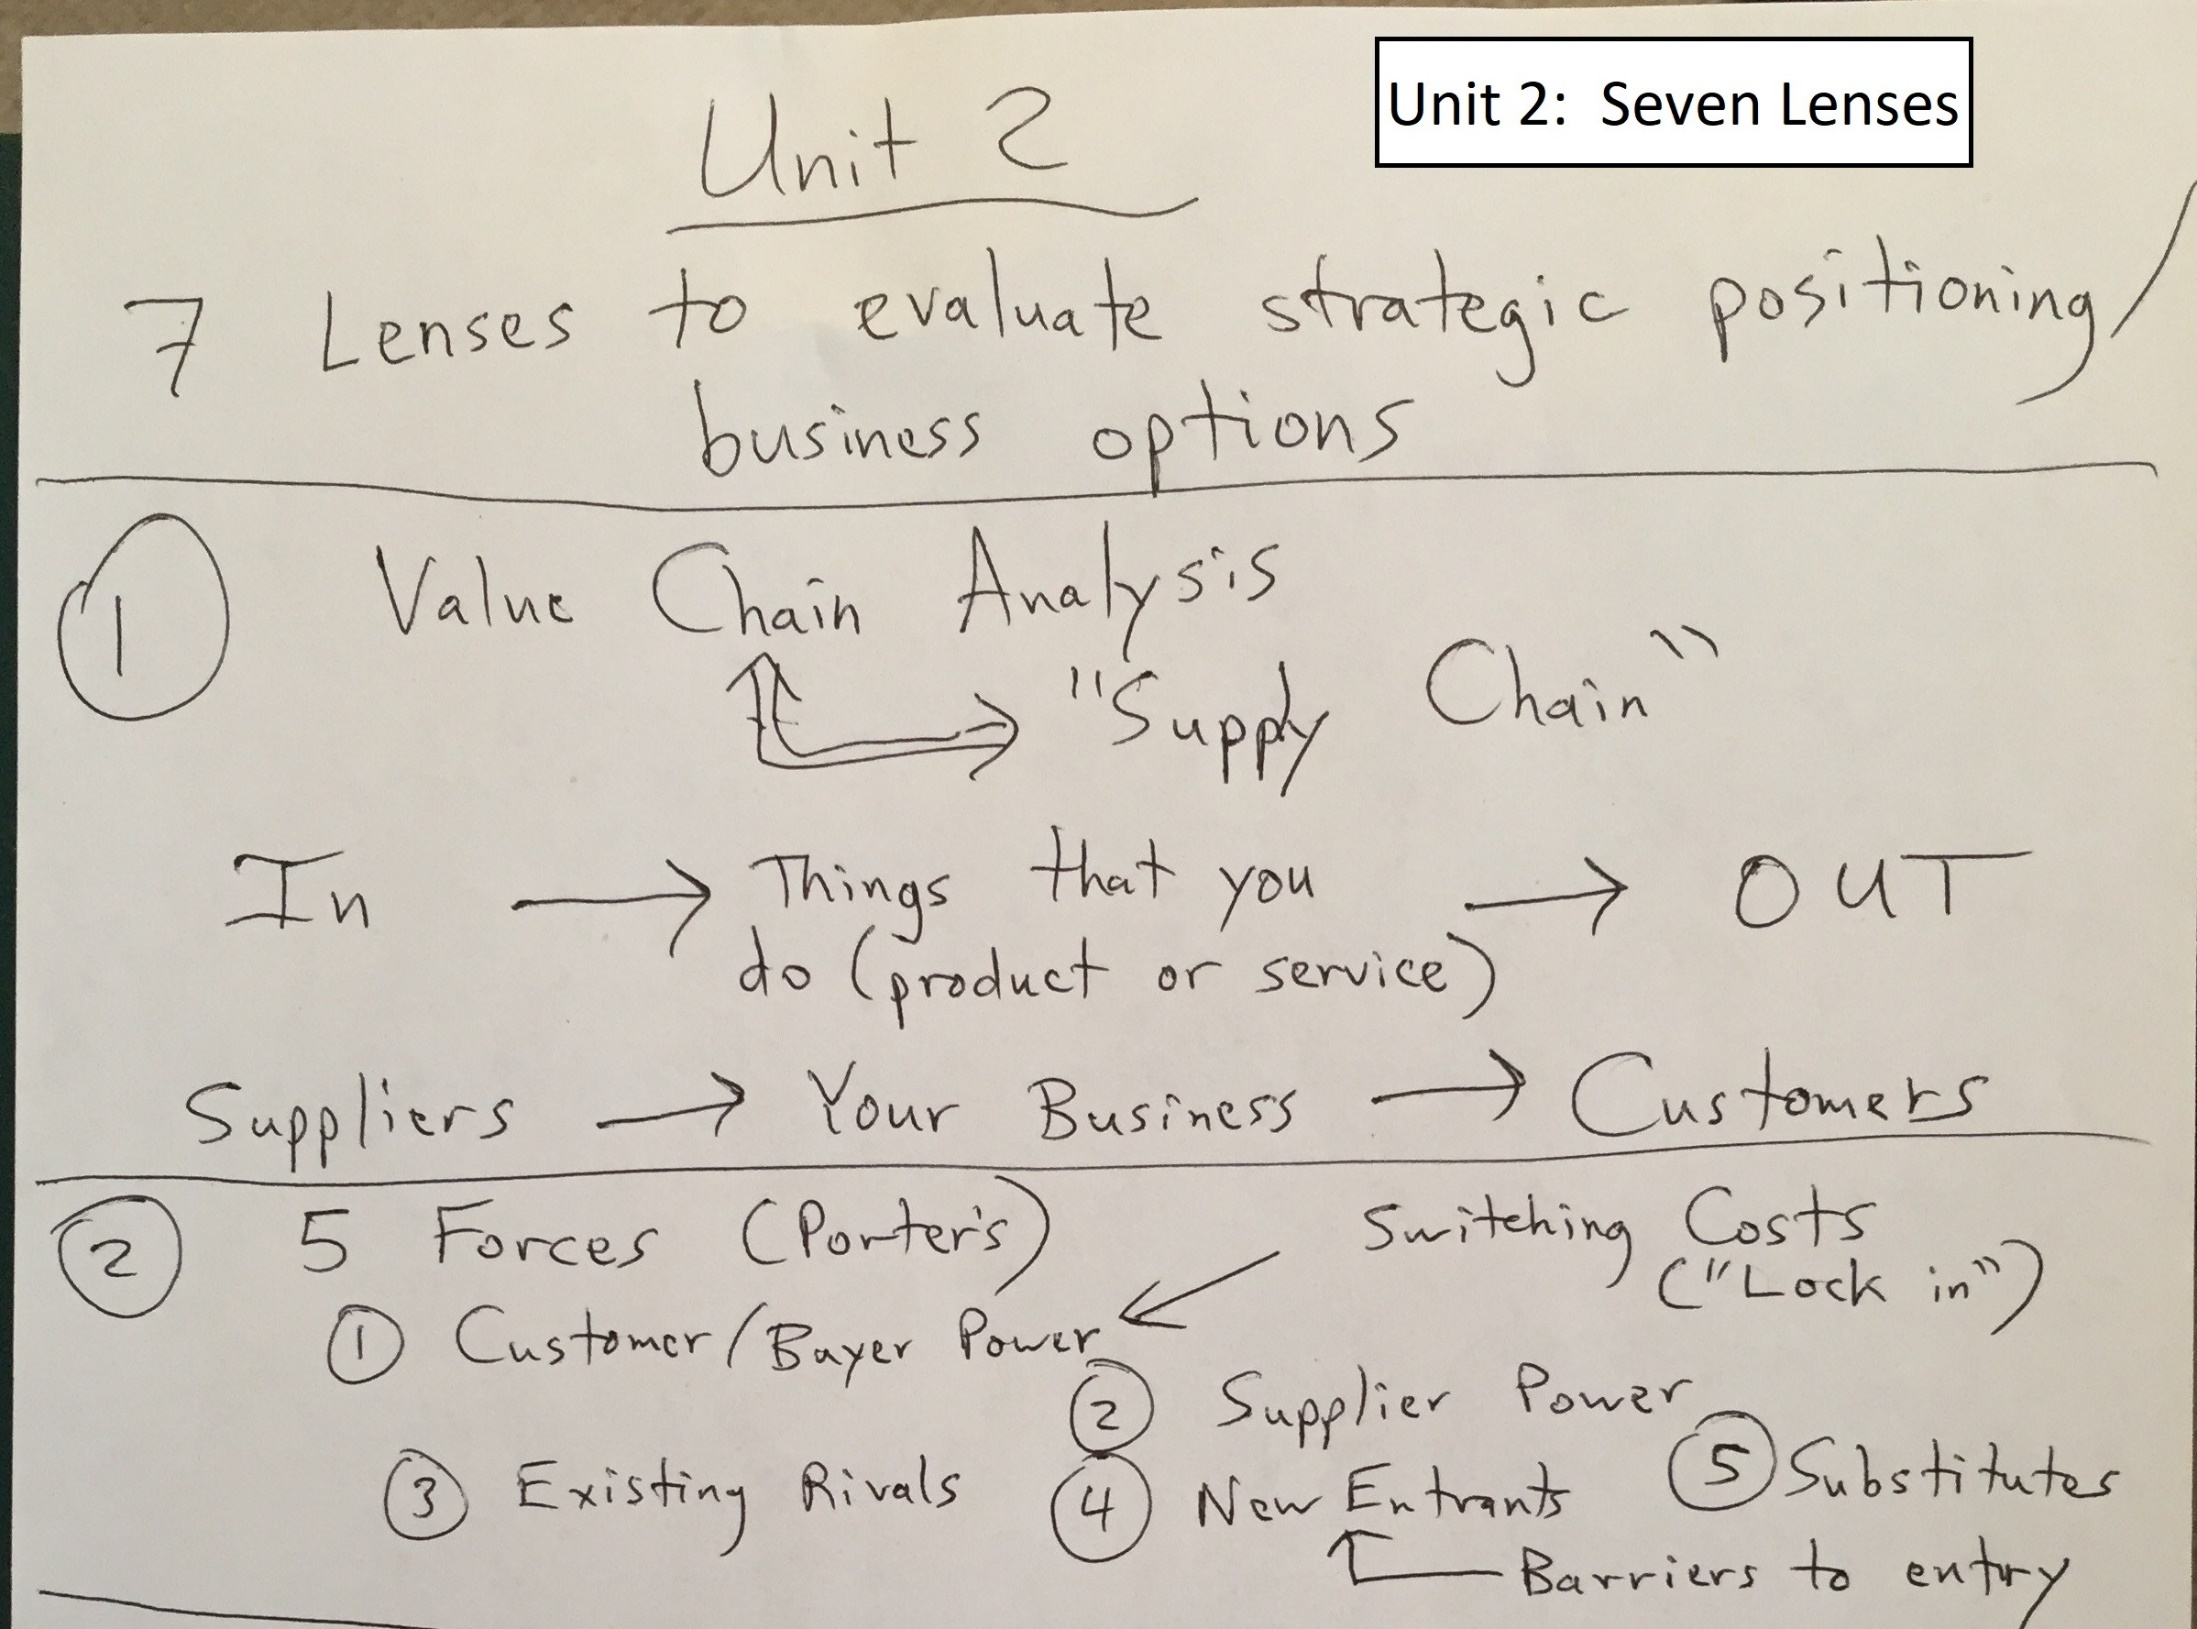 Unit 2: Seven Lenses
Unit 2
7 Lenses to evaluate strategic positioning/
business options
1 Value Chain Analysis
"Supply Chain"
In → Things that you → OUT
do (product or service)
Suppliers → Your Business → Customers
2 5 Forces (Porter's) Switching Costs
("Lock in")
1 Customer/Buyer Power ←
2 Supplier Power
3 Existing Rivals 4 New Entrants 5 Substitutes
Barriers to entry